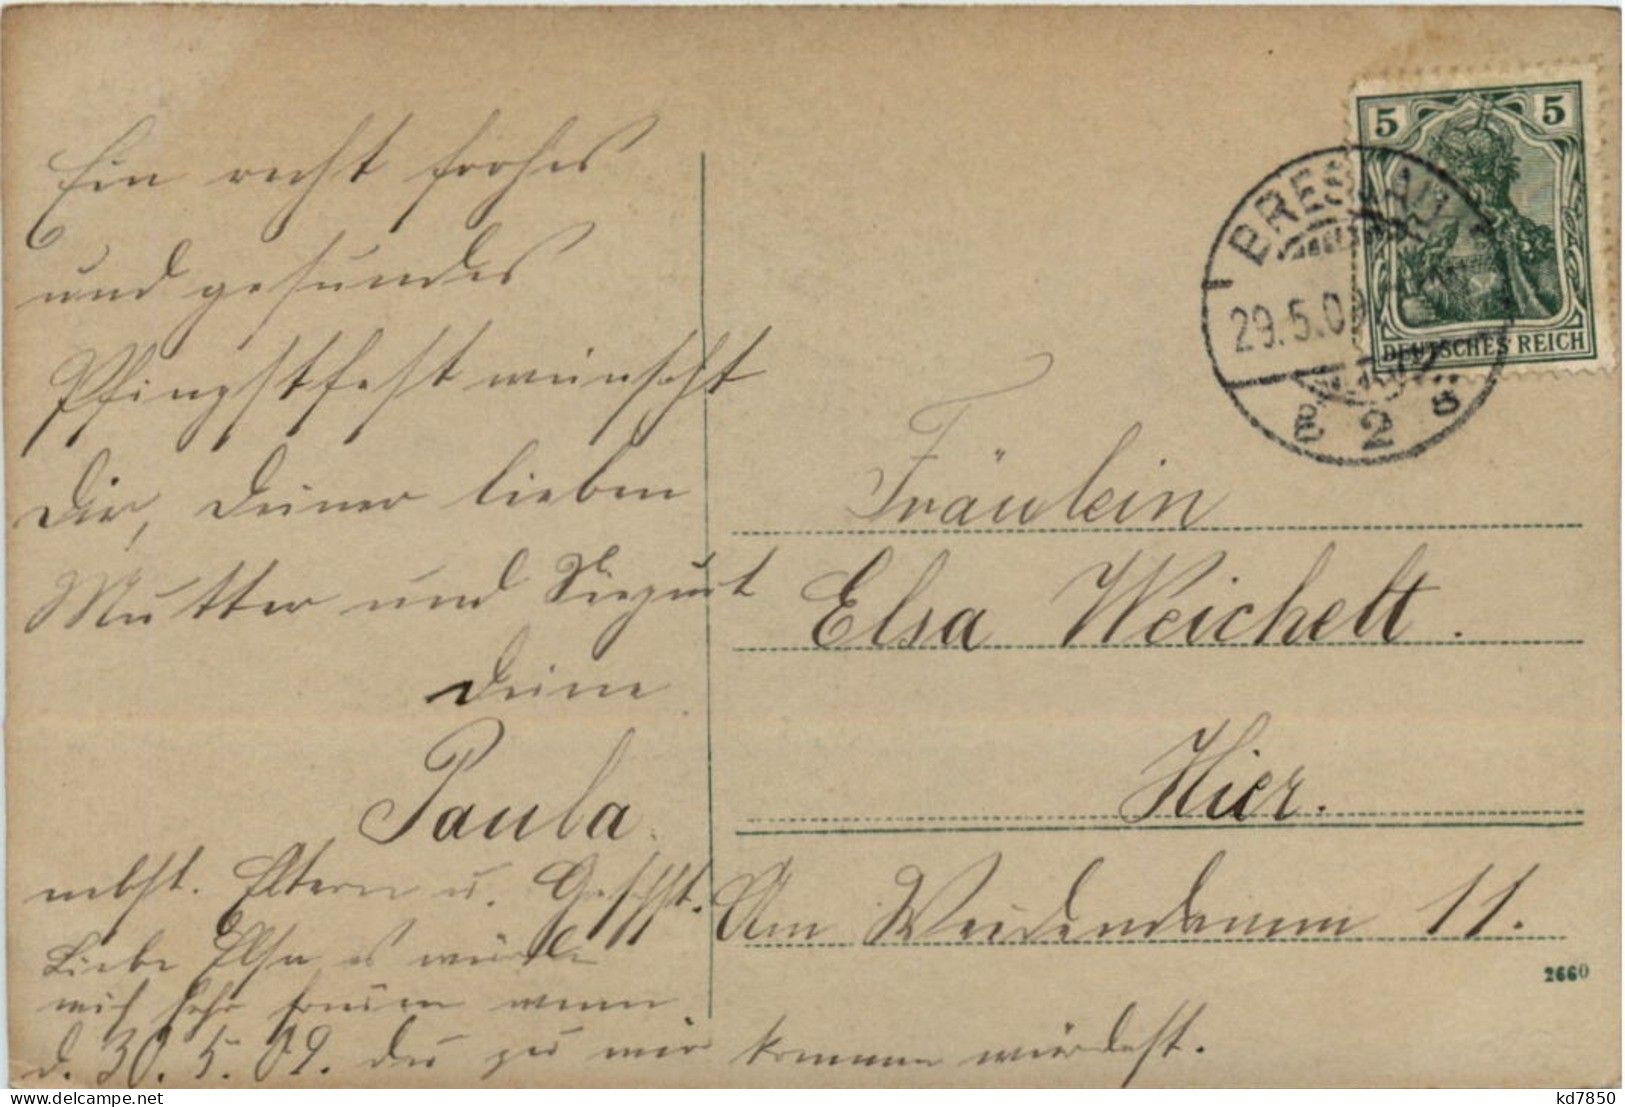 Ein recht frohes
und gesundes
Pfingstfest wünscht
Dir, Deiner lieben
Mutter und
Deine
Paula.
nebst. Eltern u. Geschw.
Liebe Elsa es würde
mich sehr freuen wenn
d. 30.5.09. du zu mir kommen würdest.
5 5
DEUTSCHES REICH
BRESLAU
29.5.0
2
Fräulein
Elsa Weichelt.
Hier.
Am Weidendamm 11.
2660
kd7850